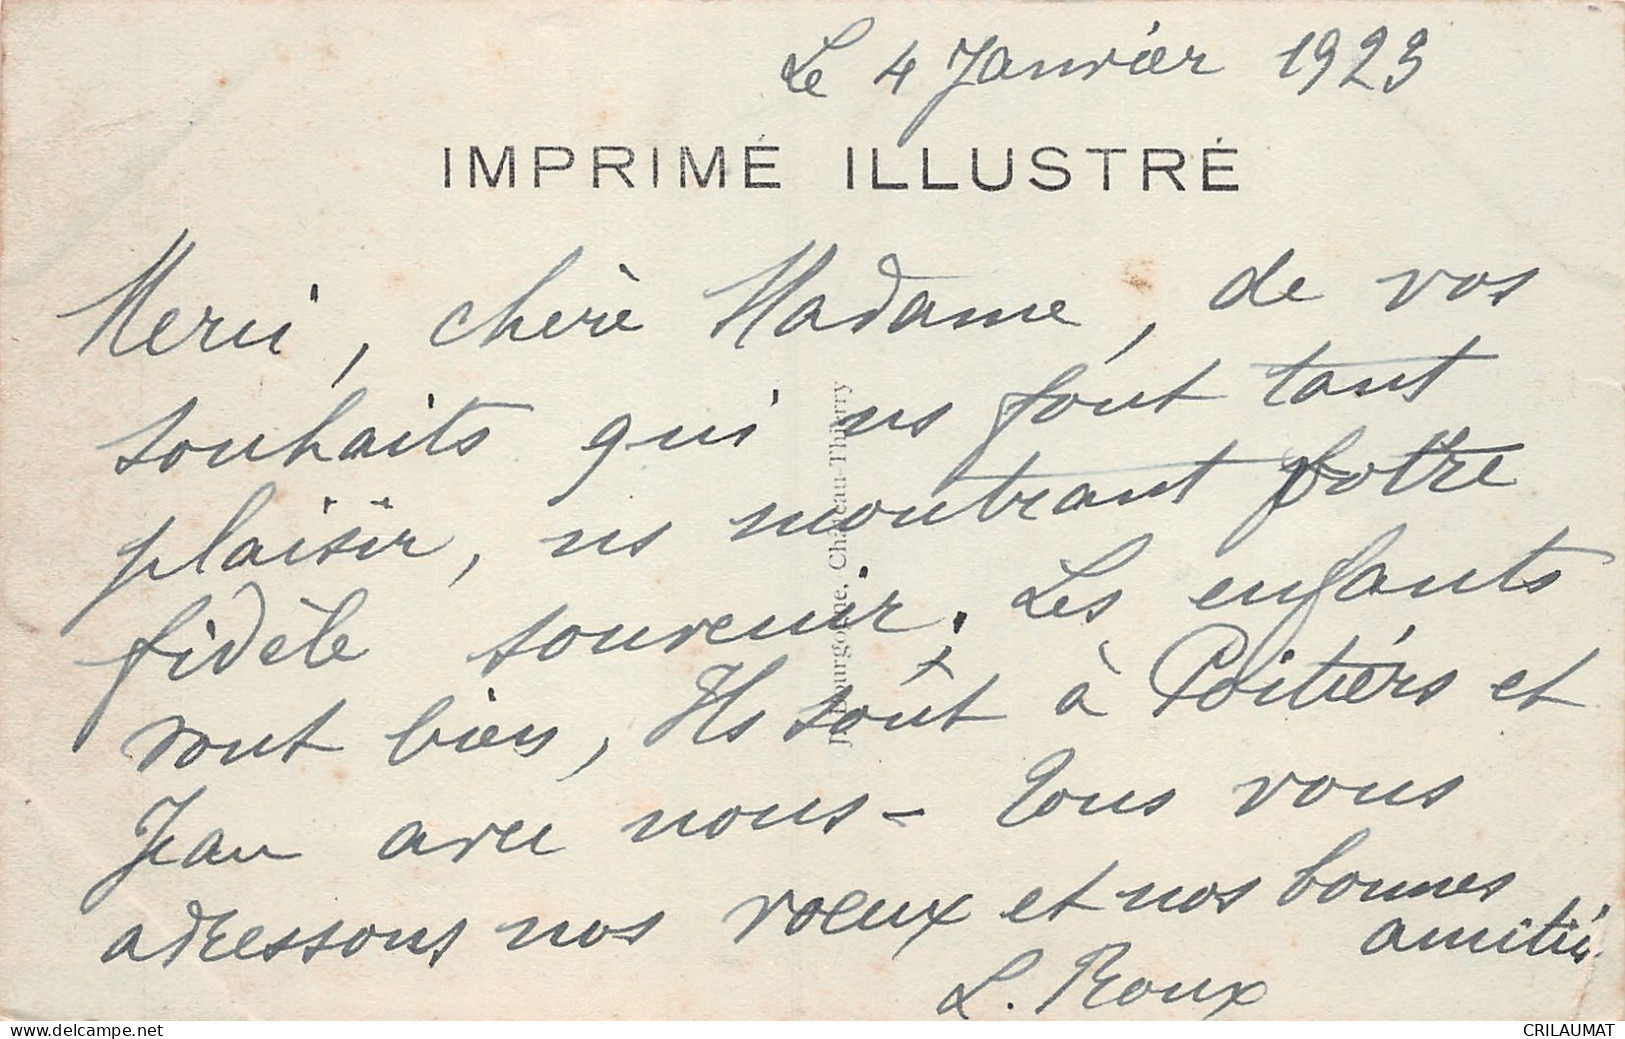 Le 4 Janvier 1923
IMPRIMÉ ILLUSTRÉ
Merci, chère Madame, de vos
souhaits qui ns font tant
plaisir, ns montrant votre
fidèle souvenir. Les enfants
vont bien, Ils sont à Poitiers et
Jean avec nous – Tous vous
adressons nos voeux et nos bonnes
amitiés.
L. Roux
Bourgogne, Château-Thierry
www.delcampe.net
CRILAUMAT